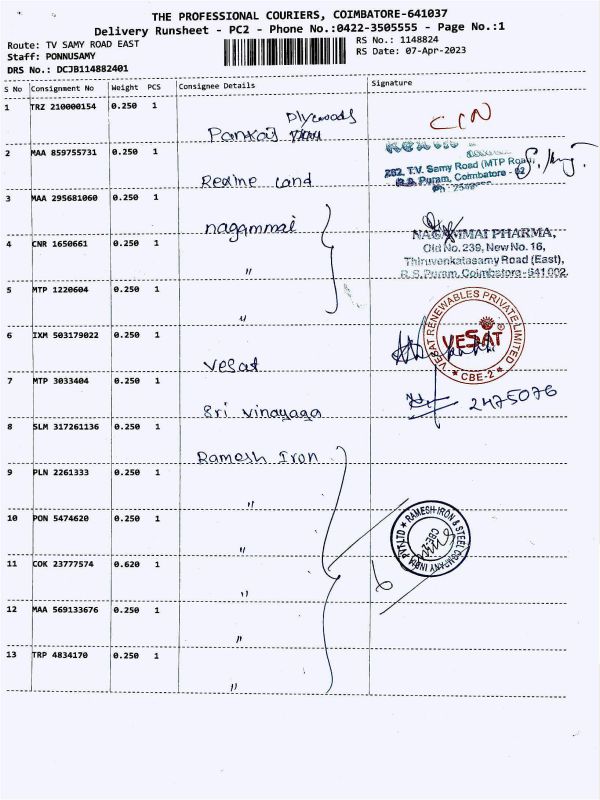 THE PROFESSIONAL COURIERS, COIMBATORE-641037
Delivery Runsheet - PC2 - Phone No.:0422-3505555 - Page No.:1
Route: TV SAMY ROAD EAST
Staff: PONNUSAMY
DRS No.: DCJB114882401
RS No.: 1148824
RS Date: 07-Apr-2023
S No Consignment No Weight PCS Consignee Details Signature
1 TRZ 210000154 0.250 1
Plywoods
Pankaj
2 MAA 859755731 0.250 1
Rexine Land
282, T.V. Samy Road (MTP Road)
R.S. Puram, Coimbatore - 02
3 MAA 295681060 0.250 1
nagammai
4 CNR 1650661 0.250 1
"
NAGAMMAI PHARMA,
Old No. 239, New No. 16,
Thiruvenkatasamy Road (East),
R.S.Puram, Coimbatore-641 002.
5 MTP 1220604 0.250 1
"
6 IXM 503179022 0.250 1
Vesat
VESAT RENEWABLES PRIVATE LIMITED
VESAT
CBE-2
7 MTP 3033404 0.250 1
Sri Vinayaga
2475076
8 SLM 317261136 0.250 1
Ramesh Iron
9 PLN 2261333 0.250 1
"
10 PON 5474620 0.250 1
"
RAMESH IRON & STEEL COMPANY INDIA PVT.LTD
11 COK 23777574 0.620 1
"
6
12 MAA 569133676 0.250 1
"
13 TRP 4834170 0.250 1
"